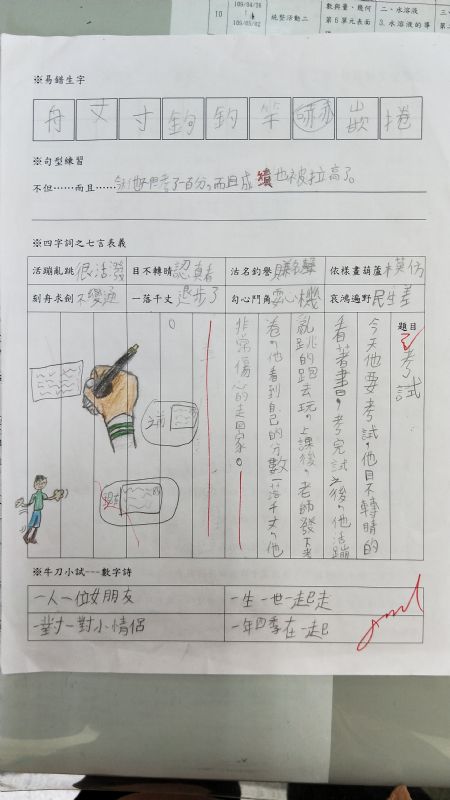 10
109/04/26
109/05/02
統整活動二
數與量、幾何
第6單元表面
二、水溶液
3.水溶液的導
※易錯生字
舟 丈 寸 鉤 釣 竿 嗜 嵌 捲
※句型練習
不但……而且……
也被拉高了。
※四字詞之七言表義
活蹦亂跳 很活潑 目不轉睛 認真看 沽名釣譽 賺名聲 依樣畫葫蘆 模仿
刻舟求劍 不變通 一落千丈 退步了 勾心鬥角 耍心機 哀鴻遍野 民生差
題目
考試
今天他要考試,他目不轉睛的
看著書,考完試之後,他活蹦
亂跳的跑去玩。上課後,老師發下考
卷,他看到自己的分數一落千丈,他
非常傷心的走回家。
※牛刀小試---數字詩
一人一位女朋友
一生一世一起走
一對一對小情侶
一年四季在一起